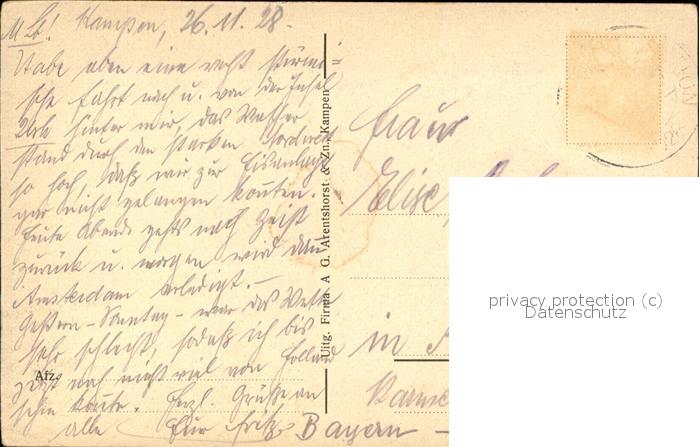 M. Lb! Kampen, 26.11.28.
Habe eben eine recht stürmi=
sche Fahrt nach u. von der Insel
Urk hinter mir, das Wasser
stand durch den starken Nordwest
so hoch, daß wir zur Eisanlage
gar nicht gelangen konnten.
Heute Abend gehts nach Zeist
zurück u. morgen wird dann
Amsterdam erledigt.—
Gestern - Sonntag - war das Wetter
sehr schlecht, sodaß ich bis
jetzt noch nicht viel von Holland
sehen konnte. Herzl. Grüße an
alle Euer Fritz
Afz.
Uitg. Firma A. G. Arentshorst & Zn., Kampen
Frau
Elise
in
Bayern
privacy protection (c)
Datenschutz